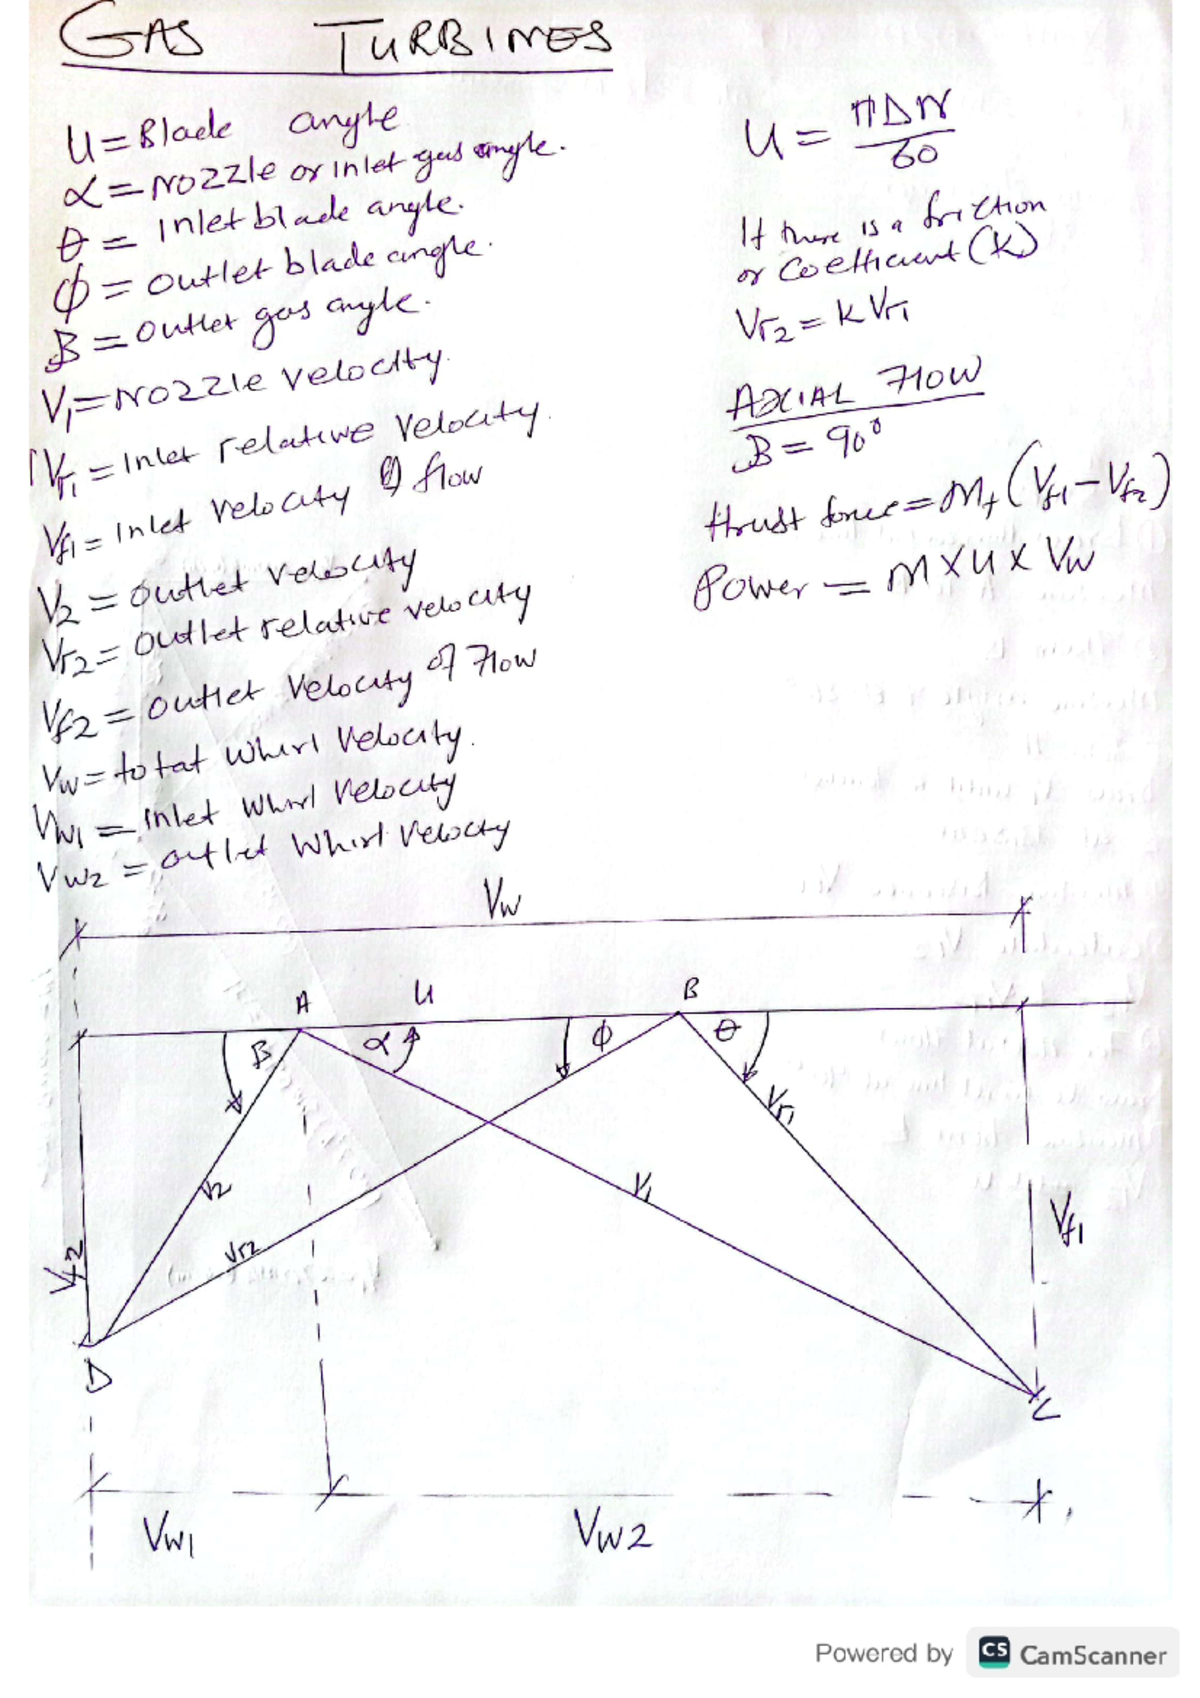 GAS TURBINES
U = Blade angle
α = Nozzle or inlet gas angle.
θ = inlet blade angle.
ϕ = outlet blade angle.
β = outlet gas angle.
V1 = Nozzle velocity.
Vr1 = Inlet relative velocity.
Vf1 = Inlet velocity of flow
V2 = outlet velocity
Vr2 = outlet relative velocity
Vf2 = outlet velocity of Flow
Vw = total whirl velocity.
Vw1 = inlet whirl velocity
Vw2 = outlet whirl velocity
U = πDN/60
If there is a friction
or coefficient (K)
Vr2 = K Vr1
AXIAL FLOW
β = 90°
thrust force = Mf (Vf1 - Vf2)
Power = M X U X Vw
Vw
A U B
β α ϕ θ
Vr1
V2 V1
Vr2 Vf1
Vf2
D
C
Vw1 Vw2
Powered by CS CamScanner